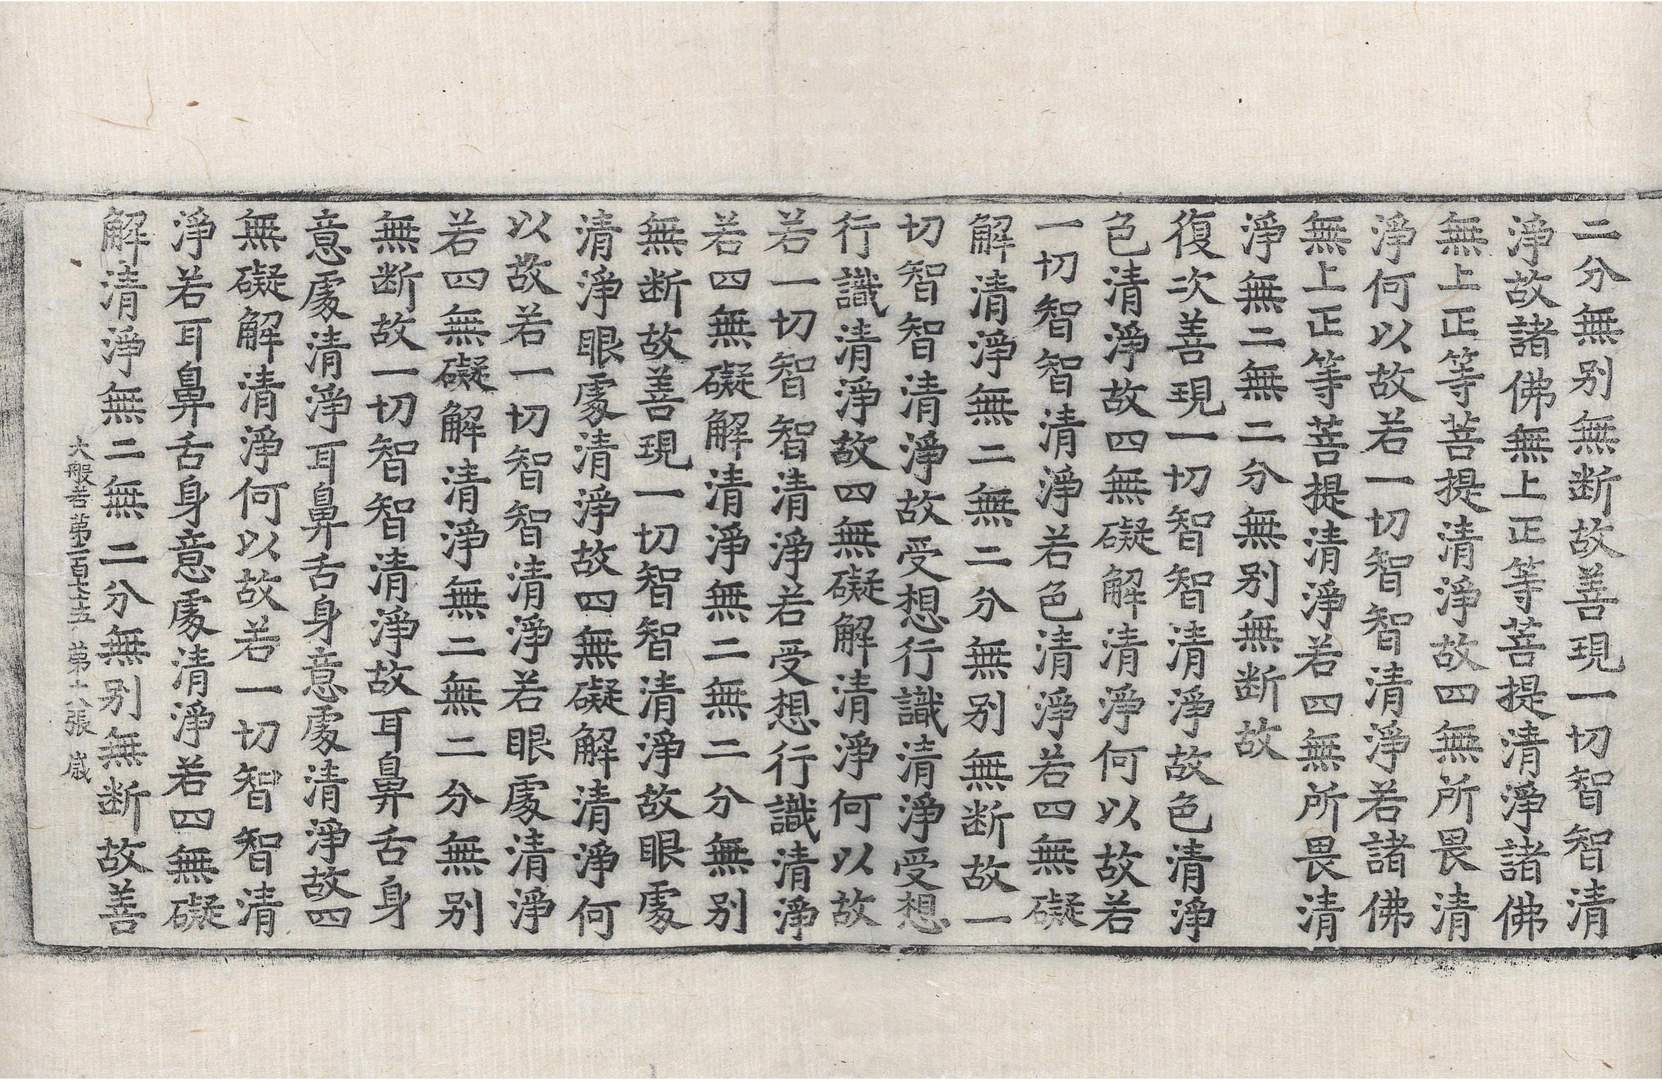 二分無別無断故善現一切智智清
淨故諸佛無上正等菩提清淨諸佛
無上正等菩提清淨故四無所畏清
淨何以故若一切智智清淨若諸佛
無上正等菩提清淨若四無所畏清
淨無二無二分無別無断故
復次善現一切智智清淨故色清淨
色清淨故四無礙解清淨何以故若
一切智智清淨若色清淨若四無礙
解清淨無二無二分無別無断故一
切智智清淨故受想行識清淨受想
行識清淨故四無礙解清淨何以故
若一切智智清淨若受想行識清淨
若四無礙解清淨無二無二分無別
無断故善現一切智智清淨故眼處
清淨眼處清淨故四無礙解清淨何
以故若一切智智清淨若眼處清淨
若四無礙解清淨無二無二分無別
無断故一切智智清淨故耳鼻舌身
意處清淨耳鼻舌身意處清淨故四
無礙解清淨何以故若一切智智清
淨若耳鼻舌身意處清淨若四無礙
解清淨無二無二分無別無断故善
大般若苐二百七十五 苐十八張 歲